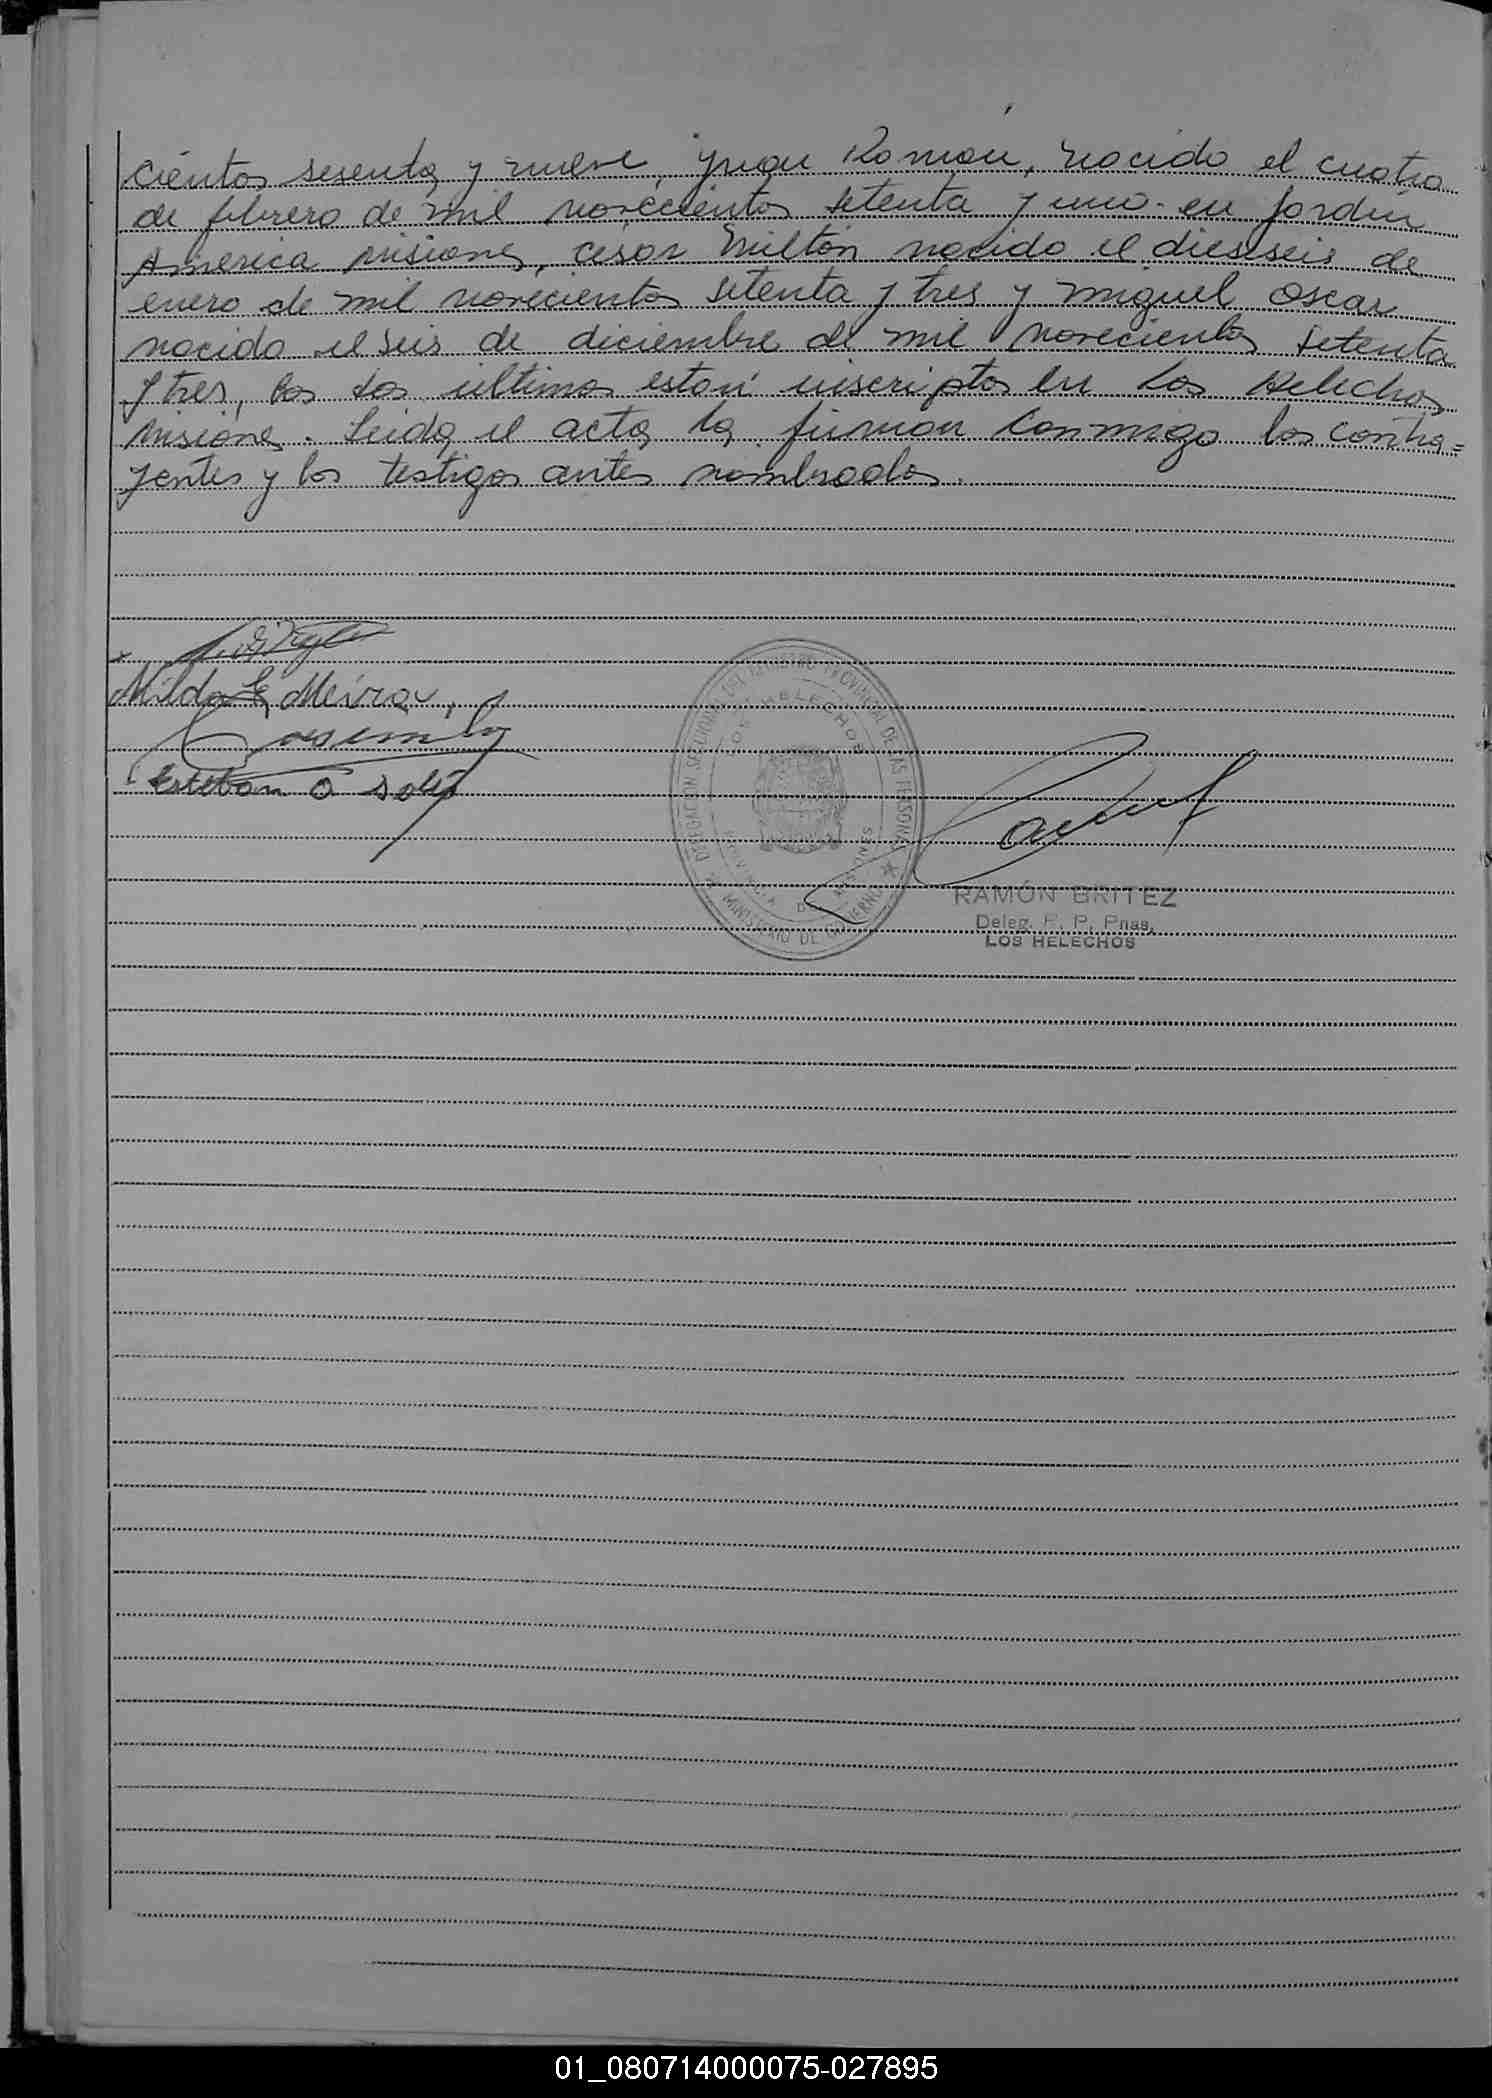 cientos sesenta y nueve, Juan Ramón, nacido el cuatro
de febrero de mil novecientos setenta y uno en Jardín
America Misiones, césar Milton nacido el dieseseis de
enero de mil novecientos setenta y tres y miguel oscar
nacido el seis de diciembre de mil novecientos setenta
y tres, los dos ultimos están inscriptos en Los Helechos
Misiones. Leida el acta la firman conmigo los contra=
yentes y los testigos antes nombrados.
Nilda E, Meira
Esteban O Solis
DELEGACION SECCIONAL DEL REGISTRO PROVINCIAL DE LAS PERSONAS
LOS HELECHOS
PROVINCIA DE MISIONES
MINISTERIO DE GOBIERNO
RAMÓN BRITEZ
Deleg. R. P. Pnas.
LOS HELECHOS
01_080714000075-027895